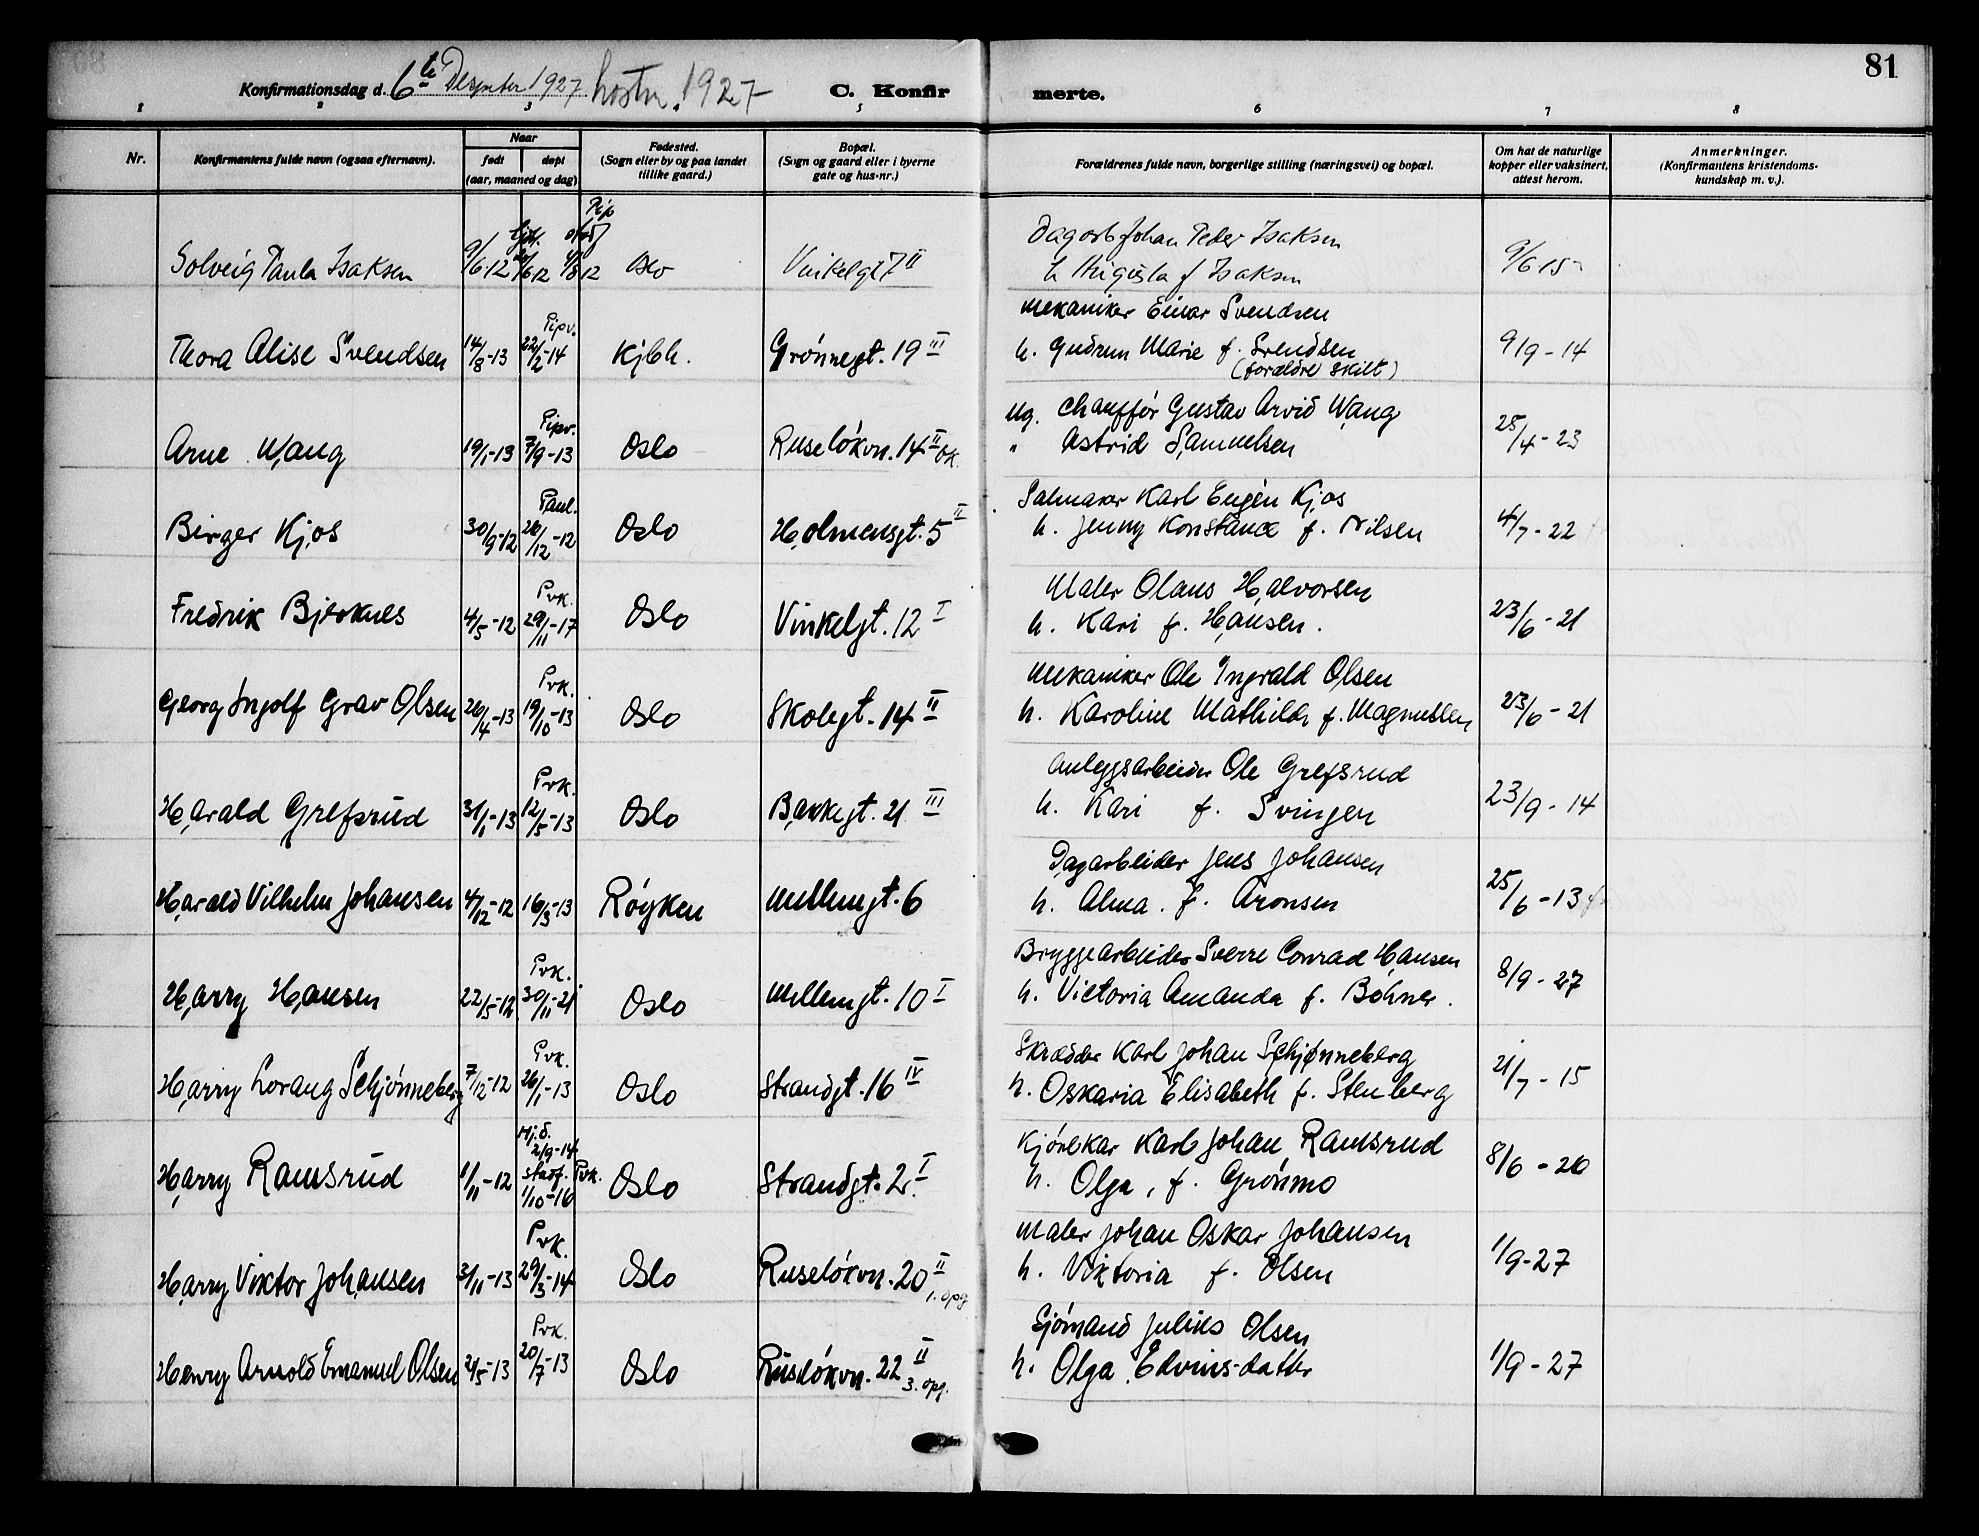 81
Konfirmationsdag d. 6te Desember 1927. høsten 1927
C. Konfirmerte.
1 2 3 5 6 7 8
Nr.
Konfirmantens fulde navn (ogsaa efternavn).
Naar
født døpt
(aar, maaned og dag)
Fødested.
(Sogn eller by og paa landet
tillike gaard.)
Bopæl.
(Sogn og gaard eller i byerne
gate og hus-nr.)
Forældrenes fulde navn, borgerlige stilling (næringsvei) og bopæl.
Om hat de naturlige
kopper eller vaksinert,
attest herom.
Anmerkninger.
(Konfirmantens kristendoms-
kundskap m. v.).
Pip
hjd. stadf
Dagarb Johan Peder Isaksen
Solveig Paula Isaksen 9/6 12 /6 12 /8 12 Oslo Vinkelgt 7 II h Augusta f Isaksen 9/6 15
Mekaniker Einar Svendsen
Pipv.
Thora Alise Svendsen 14/8-13 22/2-14 Kjbh. Grønnegt. 19 III h. Gudrun Marie f. Svendsen 9/9-14
(foreldre skilt)
Pipv. Ug. Chauffør Gustav Arvid Wang
Arne Wang 19/1-13 7/9-13 Oslo Ruseløkvn. 14 II ok. " Astrid Samuelsen 25/4-23
Paul. Salmaker Karl Eugèn Kjos
Birger Kjos 30/9-12 26/12-12 Oslo Holmensgt. 5 II h. Jenny Konstance f. Nilsen 4/7-22
Pvk. Maler Olaus Halvorsen
Fredrik Bjerknes 4/5-12 29/11-17 Oslo Vinkelgt. 12 I h. Kari f. Hansen. 23/6-21
Pvk. Mekaniker Ole Ingvald Olsen
Georg Ingolf Grav Olsen 26/4-13 19/10-13 Oslo Skolegt. 14 II h. Karoline Mathilde f. Magnussen 23/6-21
Pvk. Anleggsarbeider Ole Grefsrud
Harald Grefsrud 31/1-13 12/5-13 Oslo Bakkegt. 21 III h. Kari f. Svingen 23/9-14
Dagarbeider Jens Johansen
Harald Vilhelm Johansen 4/12-12 16/3-13 Røyken Mellemgt. 6 h. Alma. f. Aronsen 25/6-13
Pvk. Bryggearbeider Sverre Conrad Hansen
Harry Hansen 22/5-12 30/11-21 Oslo Mellemgt. 10 I h. Victoria Amanda f. Bøhner. 8/9-27
Pvk. Skredder Karl Johan Schjønneberg
Harry Lorang Schjønneberg 7/12-12 26/1-13 Oslo Strandgt. 16 IV h. Oskaria Elisabeth f. Stenberg 21/7-15
Hj.d.
2/9-14 Kjørekar Karl Johan Ramsrud
Harry Ramsrud 1/11-12 stadf. Pvk. Oslo Strandgt. 2. I h. Olga, f. Grønmo 8/6-20
1/10-16
Pvk. Maler Johan Oskar Johansen
Harry Viktor Johansen 3/11-13 29/3-14 Oslo Ruseløkvn. 20 II h. Viktoria f. Olsen 1/9-27
1. opg
Pvk. Sjømand Julius Olsen
Henry Arnold Emanuel Olsen 2/5-13 20/7-13 Oslo Ruseløkvn. 22 II h. Olga Edvins-datter 1/9-27
3. opg.